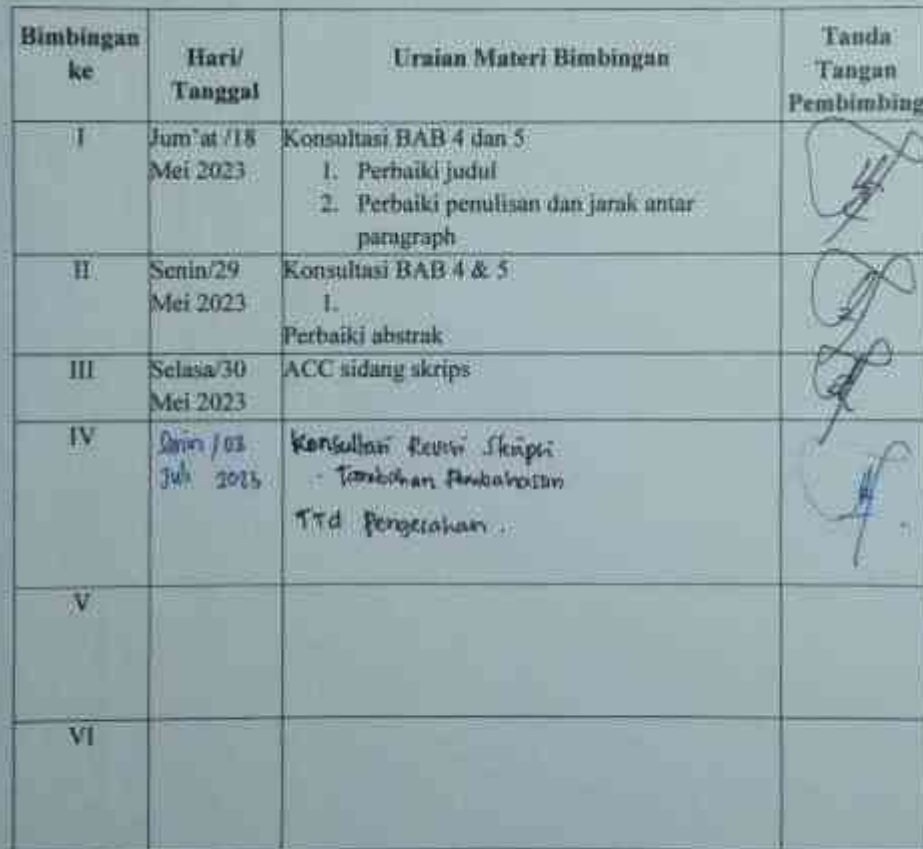 Bimbingan ke
Hari/ Tanggal
Uraian Materi Bimbingan
Tanda Tangan Pembimbing
I
Jum'at /18 Mei 2023
Konsultasi BAB 4 dan 5
1. Perbaiki judul
2. Perbaiki penulisan dan jarak antar
paragraph
II
Senin/29 Mei 2023
Konsultasi BAB 4 & 5
1.
Perbaiki abstrak
III
Selasa/30 Mei 2023
ACC sidang skrips
IV
Senin / 03
Juli 2023
Konsultasi Revisi Skripsi
- Tambahan Pembahasan
TTd Pengesahan .
V
VI